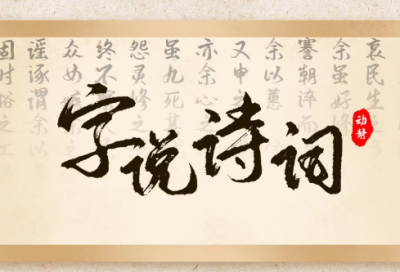 哀民生
余虽好修
謇朝谇而
余以蕙
又申
亦余心
虽九死其
怨灵修之
终不
众女
谣诼谓余以
固时俗之工
字说诗词
动静